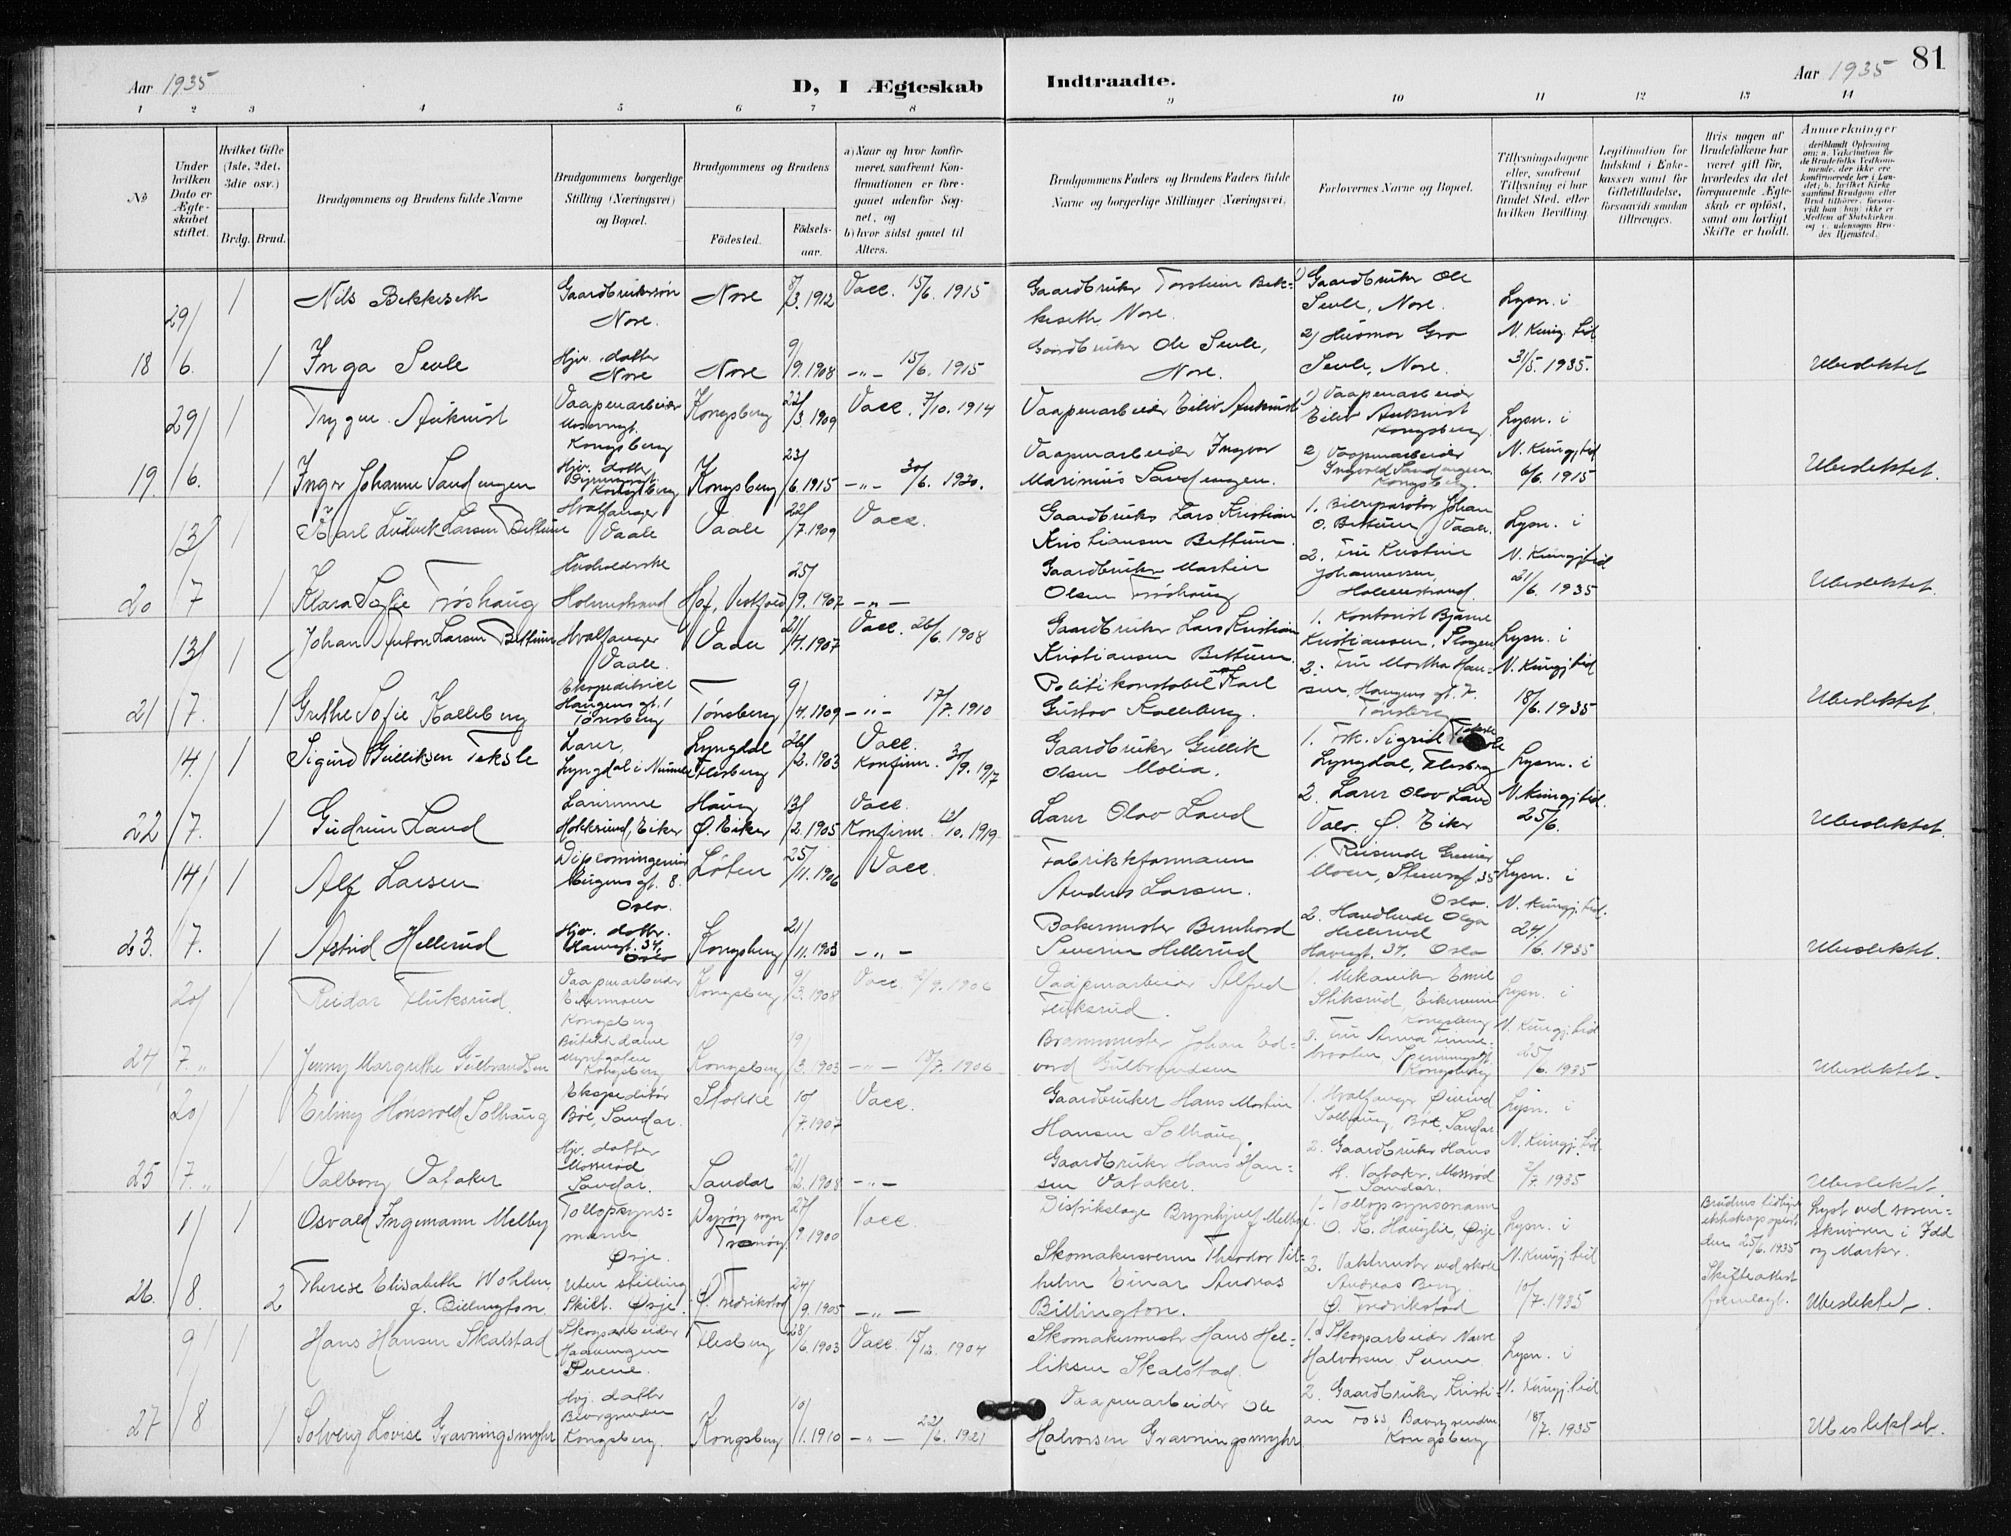 Aar 1935
D, I Ægteskab
Indtraadte.
Aar 1935
81
1 2 3 4 5 6 7 8 9 10 11 12 13 14
No
Under hvilken Dato er Ægte-skabet stiftet.
Hvilket Gifte (1ste, 2det, 3die osv.)
Brdg. Brud.
Brudgommens og Brudens fulde Navne
Brudgommens borgerlige Stilling (Næringsvei) og Bopæl.
Brudgommens og Brudens
Födested.
Födsels-aar.
a) Naar og hvor konfir-meret, saafremt Kon-firmationen er fore-gaaet udenfor Sog-net, og
b) hvor sidst gaaet til Alters.
Brudgommens Faders og Brudens Faders fulde Navne og borgerlige Stillinger (Næringsvei).
Forlovernes Navne og Bopæl.
Tillysningsdagene eller, saafremt Tillysning ei har fundet Sted, efter hvilken Bevilling
Legitimation for Indskud i Enke-kassen samt for Giftetilladelse, forsaavidt saadan tiltrænges.
Hvis nogen af Brudefolkene har været gift för, hvorledes da det foregaaende Ægte-skab er oplöst, samt om lovligt Skifte er holdt.
Anmerkninger
29/6. 1 Nils Bekkeseth Gaardbrukersøn Nore. Nore 8/3. 1912 Vacc. 15/6. 1915 Gaardbruker Torstein Bek-
keseth Nore. 1) Gaardbruker Ole Seule, Nore.
18 1 Inga Seule Hjv. datter Nore Nore 9/9. 1908 -"- 15/6. 1915 Gaardbruker Ole Seule, Nore. 2) Husmor Gro Seule, Nore. Lysn. i N. Kung. tid 31/5. 1935. Ubeslektet
29/6. 1 Trygve Aukrust Vaapenarbeider Kongsberg Kongsberg 22/3. 1909 Vacc. 7/10. 1914 Vaapenarbeider Eiliv Aukrust 1) Vaapenarbeider Eiliv Aukrust Kongsberg
19. 1 Inger Johanne Sandengen Hjv. datter Kongsberg Kongsberg 23/6. 1915 -"- 30/6. 1920. Vaapenarbeider Ingvar Marinius Sandengen. 2) Vaapenarbeider Ingvald Sandengen. Kongsberg. Lysn. i N. Kungj. tid 6/6. 1915 Ubeslektet.
13/7 1 Karl Ludvik Larsen Bettum Hvalfanger Vaale Vaale 22/7. 1909 Vacc. Gaardbruker Lars Kristian Kristiansen Bettum. 1. Johan O. Bettum, Vaale.
20 1 Klara Sofie Trøshaug Husholderske Holmestrand Hof, Vestfold 25/9. 1907 -"- Gaardbruker Martin Olsen Trøshaug 2. Fru Kristine Johannessen, Holmestrand. Lysn. i N. Kungj. tid 21/6. 1935 Ubeslektet.
13/7. 1 Johan Anton Larsen Bettum Hvalfanger Vaale. Vaale 21/4. 1907 Vacc. 26/6. 1908 Gaardbruker Lars Kristian Kristiansen Bettum. 1. Kontorist Bjarne Kristiansen, Slagen
21 1 Grethe Sofie Kalleberg Ekspeditrice Haugens gt. 1 Tønsberg Tønsberg 9/4. 1909 -"- 17/7. 1910 Politikonstabel Karl Gustav Kalleberg. 2. Fru Martha Han-sen, Haugens gt. 7. Tønsberg Lysn. i N. Kungj. tid 18/6. 1935 Ubeslektet.
14/7. 1 Sigurd Gulliksen Teksle Lærer, Lyngdal i Numedal Lyngdal Flesberg 26/2. 1903 Vacc. Konfirm. 30/9. 1917 Gaardbruker Gullik Olsen Molia. 1. Frk. Sigrid Teksle Lyngdal, Flesberg
22 1 Gudrun Land Lærerinne Hokksund, Eiker Haug Ø. Eiker 13/2. 1905 Vacc. Konfirm. 12/10. 1919 Lærer Olav Land 2. Lærer Olav Land Ø. Eiker Lysn. i N. Kungj. tid. 25/6. Ubeslektet.
14/7. 1 Alf Larsen Diplomingeniør gt. 8. Oslo. Løten 25/11. 1906 Vacc. Fabrikkformann Anders Larsen. 1. Reisende Moen, 35 Oslo.
23. 1 Astrid Hellerud Hjv. datter. 34 Oslo Kongsberg 21/11. 1903 -"- Bakermester Bernhard Severin Hellerud 2. Handlende Olga Hellerud 34. Oslo Lysn. i N. Kungj. tid. 24/6. 1935 Ubeslektet.
20/7. 1 Reidar Fluksrud. Vaapenarbeider Kongsberg Kongsberg 9/3. 1908 Vacc. Vaapenarbeider Alfred Fluksrud. 1. Mekaniker Emil Stiksrud, Kongsberg
24 1 Jenny Margrethe Gulbrandsen Myntgaten Kongsberg Kongsberg 19/3. 1903 -"- 15/7. 1906 Brannmester Johan Ed-vard Gulbrandsen 2. Fru Anna Kongsberg Lysn. i N. Kungj. tid 25/6. 1935 Ubeslektet.
20/7. 1 Erling Hønsvold Solhaug Ekspeditør Bøe, Sandar. Stokke 10/7. 1907 Vacc. Gaardbruker Hans Martin Hansen Solhaug. 1. Hvalfanger Øivind Solhaug, Bøe, Sandar
25 1 Valborg Vataker Hjv. datter Mosserød Sandar. Sandar 21/2. 1908 -"- Gaardbruker Hans Han-sen Vataker. 2. Gaardbruker Hans H. Vataker, Mosserød Sandar. Lysn. i N. Kungj. tid. 2/7. 1935 Ubeslektet.
1/8. 1 Osvald Ingemann Melby Tollopsyns-mann Ørje. Dyrøy sogn Tranøy. 27/9. 1900 Vacc. Distriktslæge Brynhjulf Melby 1. Tollopsynsmann O. K. Hauglie, Ørje Brudens tidligere ekteskap opløst den 25/6. 1935 Lyst ved soren-skriveren i Idd og Marker.
26. 2 Therese Elisabeth Wohlen, f. Billington. Uten stilling Skilt. Ørje. Ø. Fredrikstad 24/9. 1905 -"- Skomakersvenn Theodor Vil-helm Einar Andreas Billington. 2. Vaktmester ved skole Andreas Berg Ø. Fredrikstad Lysn. i N. Kungj. tid 10/7. 1935 Skifteattest fremlagt. Ubeslektet.
9/8 1 Hans Hansen Skalstad Skogsarbeider Haavengen Svene. Flesberg 28/6. 1903 Vacc. 15/12. 1904 Skomakermester Hans Hel-liksen Skalstad. 1. Skogsarbeider Narve Halvorsen Svene
27 1 Solveig Lovise Gravningsmyhr Hjv. datter Kongsberg. Kongsberg 10/1. 1910 -"- 22/6. 1921 Vaapenarbeider Ole Halvorsen Gravningsmyhr 2. Gaardbruker Kristi-an Foss Kongsberg Lysn. i N. Kungj. tid 18/7. 1935 Ubeslektet.